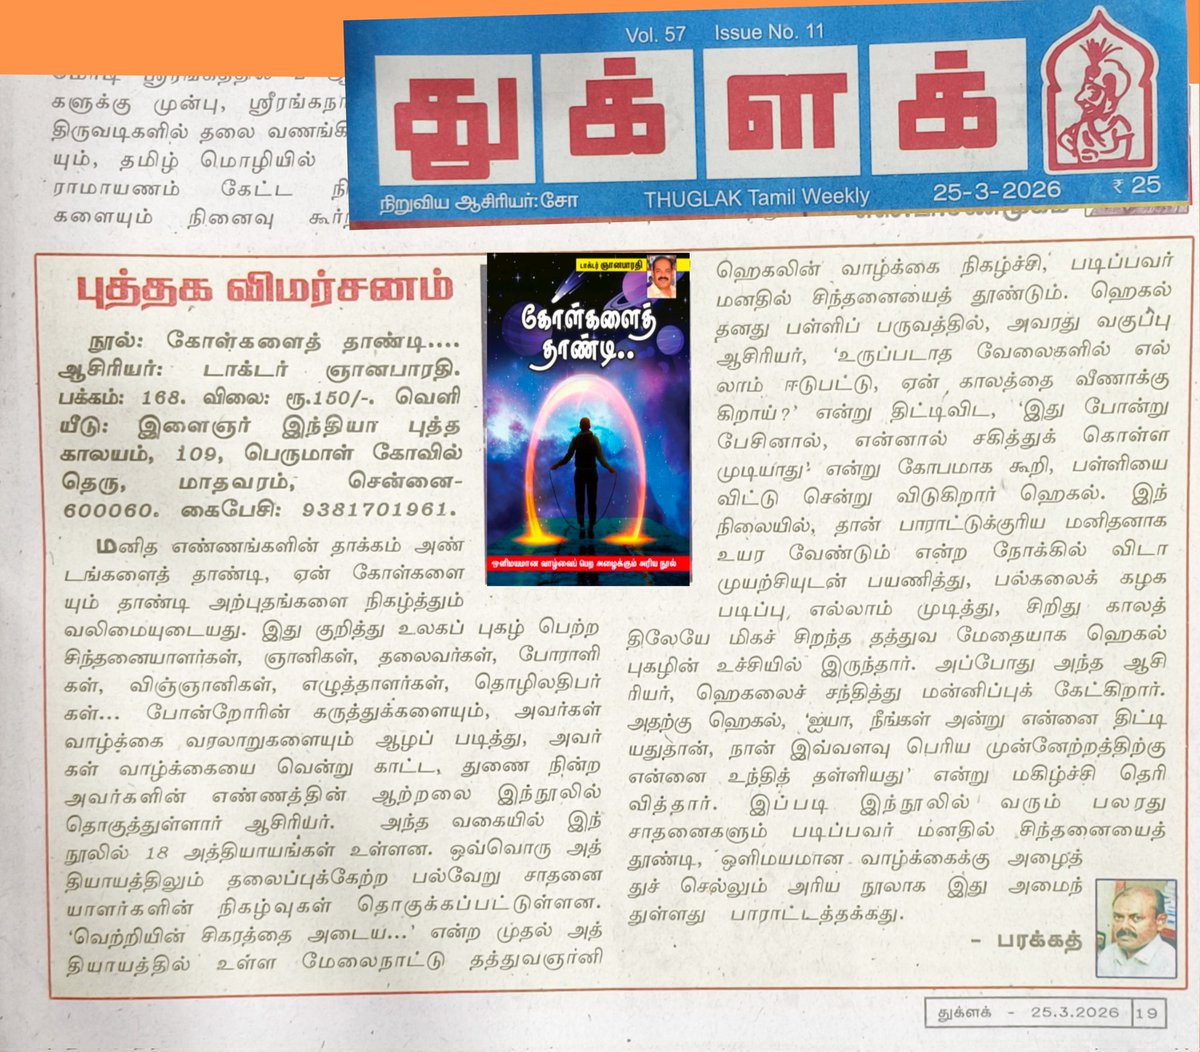 Vol. 57 Issue No. 11
துக்ளக்
நிறுவிய ஆசிரியர்: சோ THUGLAK Tamil Weekly 25-3-2026 ₹ 25
களுக்கு முன்பு,
திருவடிகளில் தலை
யும், தமிழ் மொழியில்
ராமாயணம் கேட்ட
களையும் நினைவு
புத்தக விமர்சனம்
நூல்: கோள்களைத் தாண்டி....
ஆசிரியர்: டாக்டர் ஞானபாரதி.
பக்கம்: 168. விலை: ரூ.150/-. வெளி
யீடு: இளைஞர் இந்தியா புத்த
காலயம், 109, பெருமாள் கோவில்
தெரு, மாதவரம், சென்னை-
600060. கைபேசி: 9381701961.
மனித எண்ணங்களின் தாக்கம் அண்
டங்களைத் தாண்டி, ஏன் கோள்களை
யும் தாண்டி அற்புதங்களை நிகழ்த்தும்
வலிமையுடையது. இது குறித்து உலகப் புகழ் பெற்ற
சிந்தனையாளர்கள், ஞானிகள், தலைவர்கள், போராளி
கள், விஞ்ஞானிகள், எழுத்தாளர்கள், தொழிலதிபர்
கள்... போன்றோரின் கருத்துக்களையும், அவர்கள்
வாழ்க்கை வரலாறுகளையும் ஆழப் படித்து, அவர்
கள் வாழ்க்கையை வென்று காட்ட, துணை நின்ற
அவர்களின் எண்ணத்தின் ஆற்றலை இந்நூலில்
தொகுத்துள்ளார் ஆசிரியர். அந்த வகையில் இந்
நூலில் 18 அத்தியாயங்கள் உள்ளன. ஒவ்வொரு அத்
தியாயத்திலும் தலைப்புக்கேற்ற பல்வேறு சாதனை
யாளர்களின் நிகழ்வுகள் தொகுக்கப்பட்டுள்ளன.
'வெற்றியின் சிகரத்தை அடைய...' என்ற முதல் அத்
தியாயத்தில் உள்ள மேலைநாட்டு தத்துவஞர்னி
டாக்டர் ஞானபாரதி
கோள்களைத்
தாண்டி..
ஒளிமயமான வாழ்வைப் பெற அழைக்கும் அரிய நூல்
ஹெகலின் வாழ்க்கை நிகழ்ச்சி, படிப்பவர்
மனதில் சிந்தனையைத் தூண்டும். ஹெகல்
தனது பள்ளிப் பருவத்தில், அவரது வகுப்பு
ஆசிரியர், 'உருப்படாத வேலைகளில் எல்
லாம் ஈடுபட்டு, ஏன் காலத்தை வீணாக்கு
கிறாய்?' என்று திட்டிவிட, 'இது போன்று
பேசினால், என்னால் சகித்துக் கொள்ள
முடியாது' என்று கோபமாக கூறி, பள்ளியை
விட்டு சென்று விடுகிறார் ஹெகல். இந்
நிலையில், தான் பாராட்டுக்குரிய மனிதனாக
உயர வேண்டும் என்ற நோக்கில் விடா
முயற்சியுடன் பயணித்து, பல்கலைக் கழக
படிப்பு எல்லாம் முடித்து, சிறிது காலத்
திலேயே மிகச் சிறந்த தத்துவ மேதையாக ஹெகல்
புகழின் உச்சியில் இருந்தார். அப்போது அந்த ஆசி
ரியர், ஹெகலைச் சந்தித்து மன்னிப்புக் கேட்கிறார்.
அதற்கு ஹெகல், 'ஐயா, நீங்கள் அன்று என்னை திட்டி
யதுதான், நான் இவ்வளவு பெரிய முன்னேற்றத்திற்கு
என்னை உந்தித் தள்ளியது' என்று மகிழ்ச்சி தெரி
வித்தார். இப்படி இந்நூலில் வரும் பலரது
சாதனைகளும் படிப்பவர் மனதில் சிந்தனையைத்
தூண்டி, ஒளிமயமான வாழ்க்கைக்கு அழைத்
துச் செல்லும் அரிய நூலாக இது அமைந்
துள்ளது பாராட்டத்தக்கது.
- பரக்கத்
துக்ளக் - 25.3.2026 19